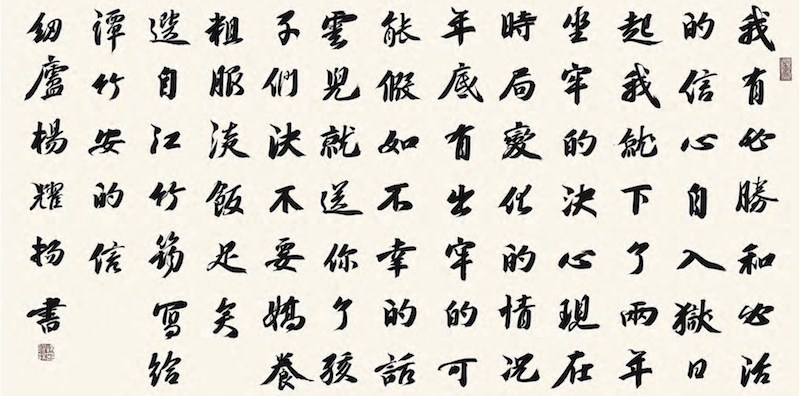 我有必勝和必活
的信心自入獄日
起我就下了兩年
坐牢的決心現在
時局變化的情況
年底有出牢的可
能假如不幸的話
雲兒就送你了孩
子們決不要嬌養
粗服淡飯足矣
選自江竹筠寫給
譚竹安的信
紉廬楊耀扬書